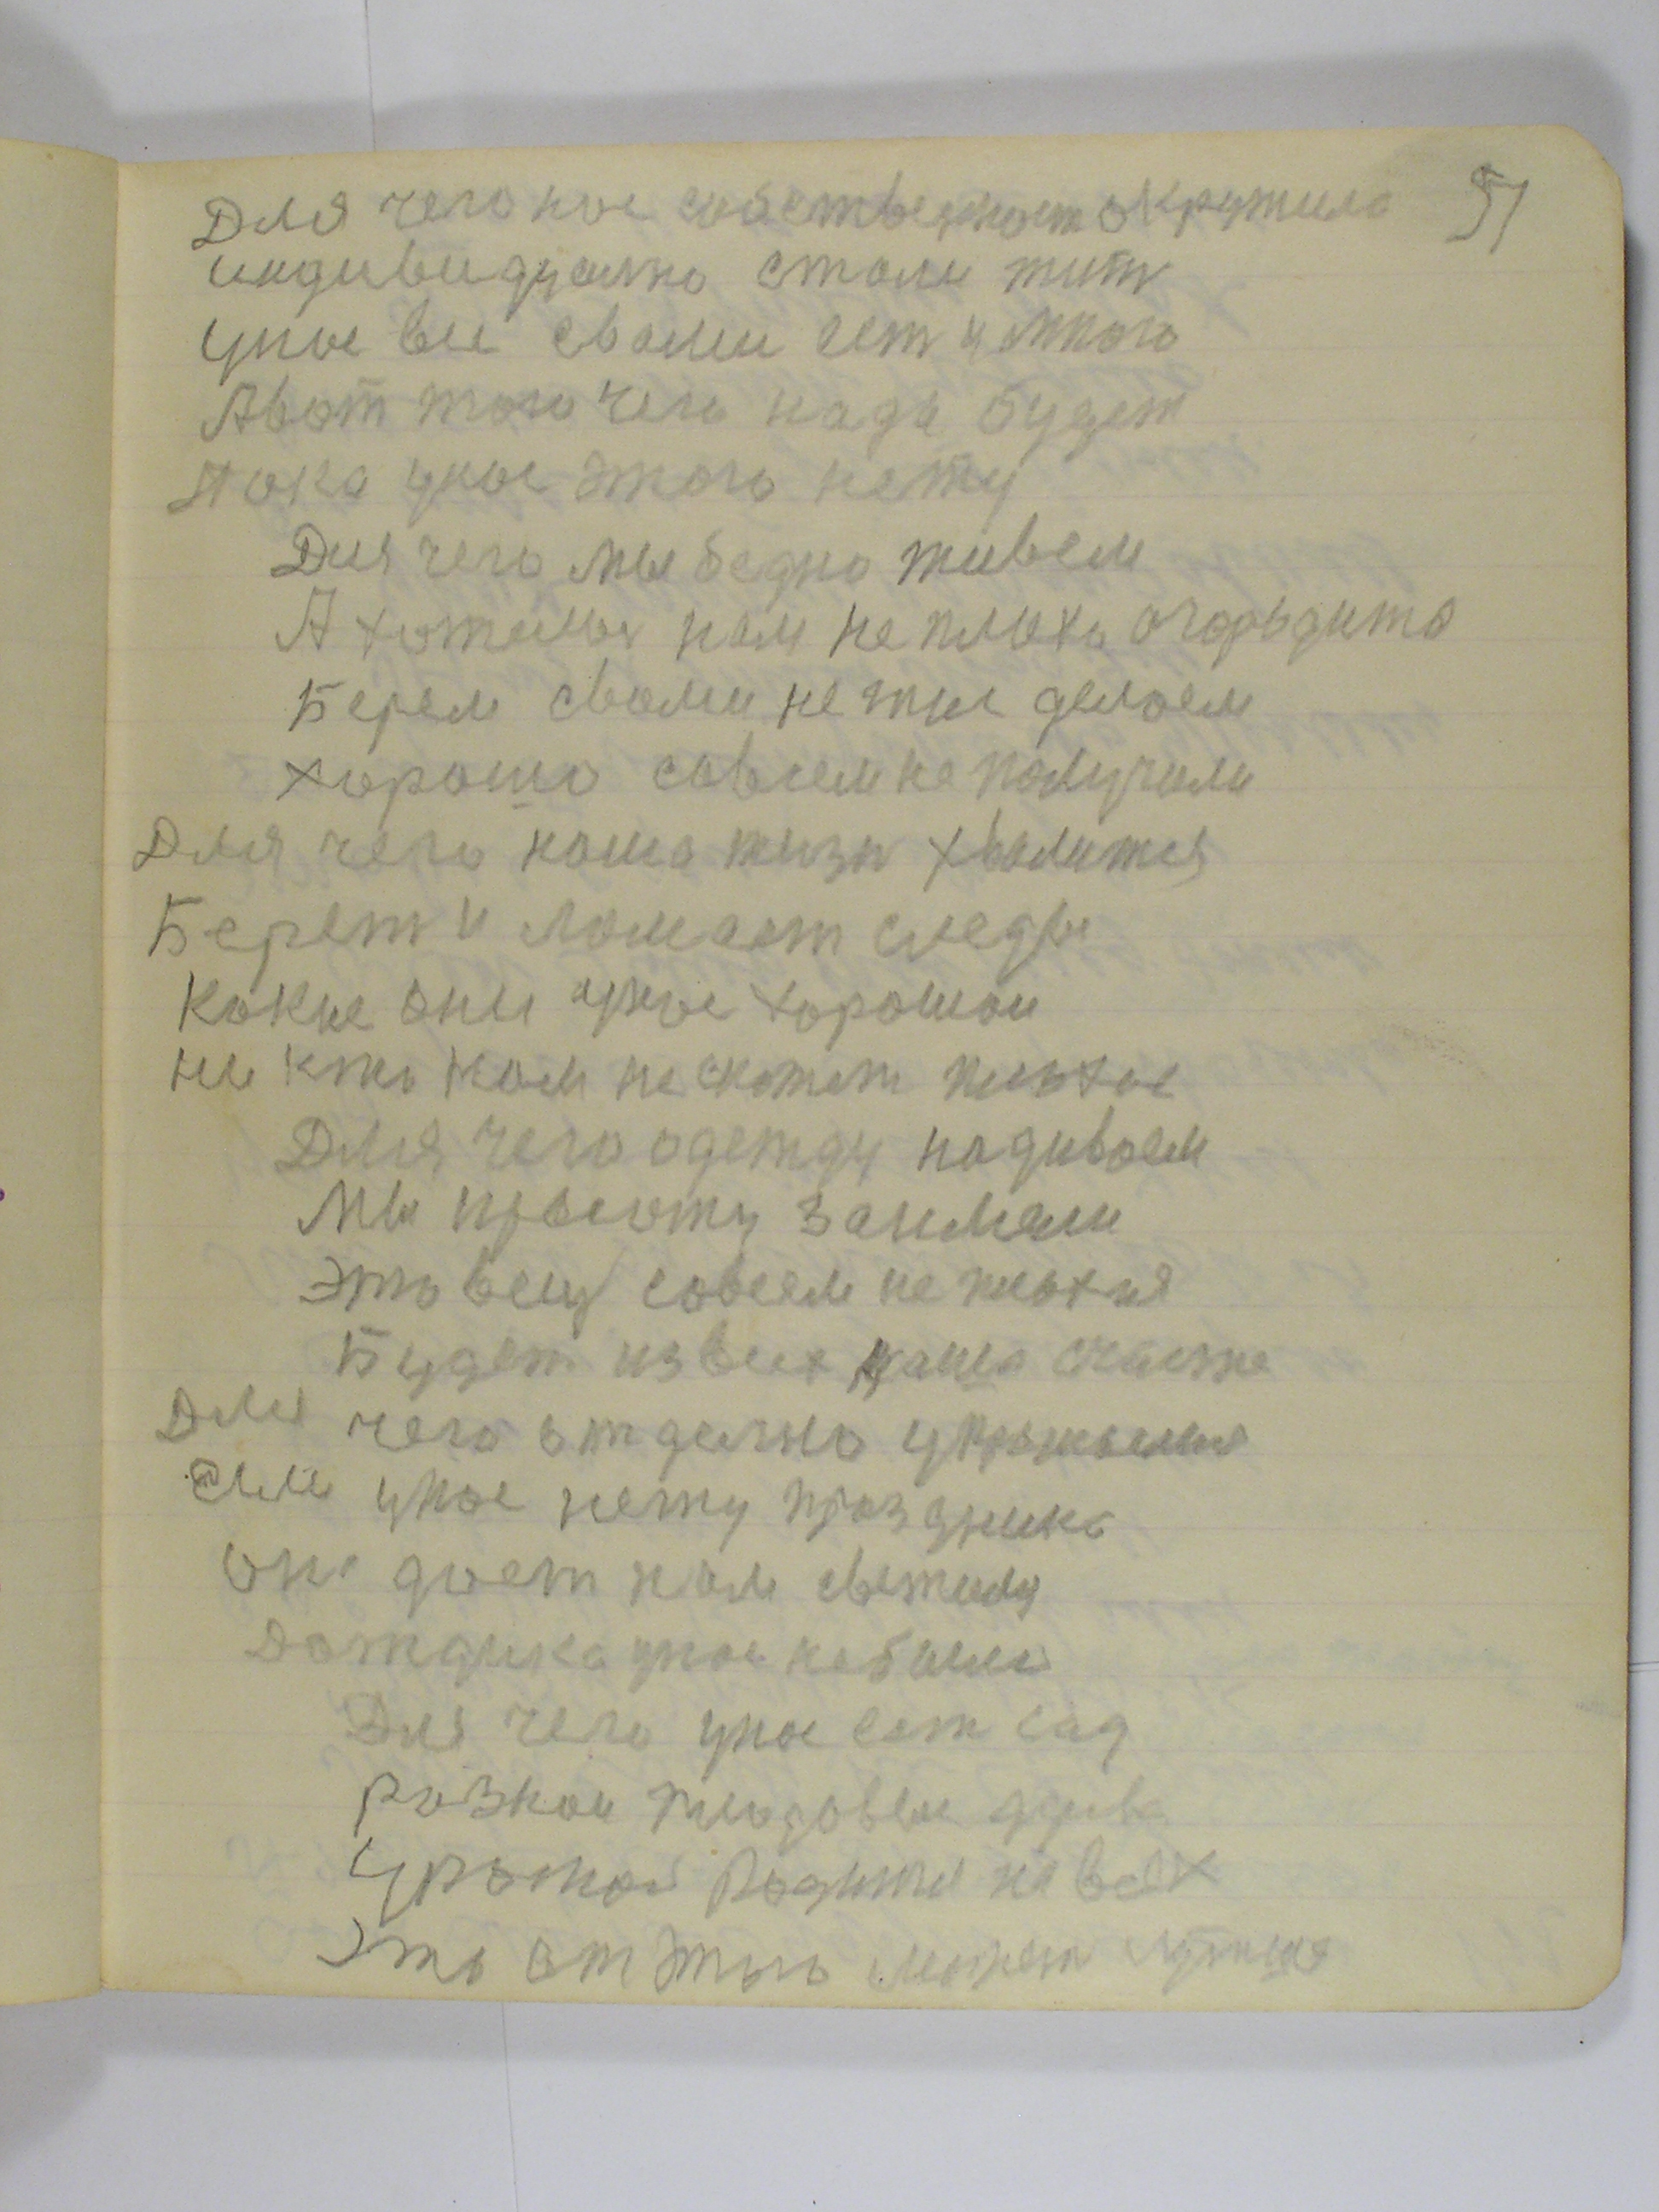 Для чего нас собственност окружила 51
индивидуално стали жить
унас все свами ест и много
Авот того чего нада будет
Пока унас этого нету
Для чего мы бедно живем
А хотелас нам не плохо огородить
Берем свами не тие делаем
хорошо совсем не получили
Для чего наша жизн хвалится
Берет и ломает следы
Какие они унас хорошои
ни кто нам нескажет плохое
Для чего одежду надиваем
Мы красоту занимали
Это вещ совсем не плохия
Будет из всех наша счастие
Для чего отделно
если унас нету праздника
она дает нам светилу
Дождика унас небыло
Для чего унас ест сад
разнои плодовыи
Урожай родится на всех
Это от этого может лутше